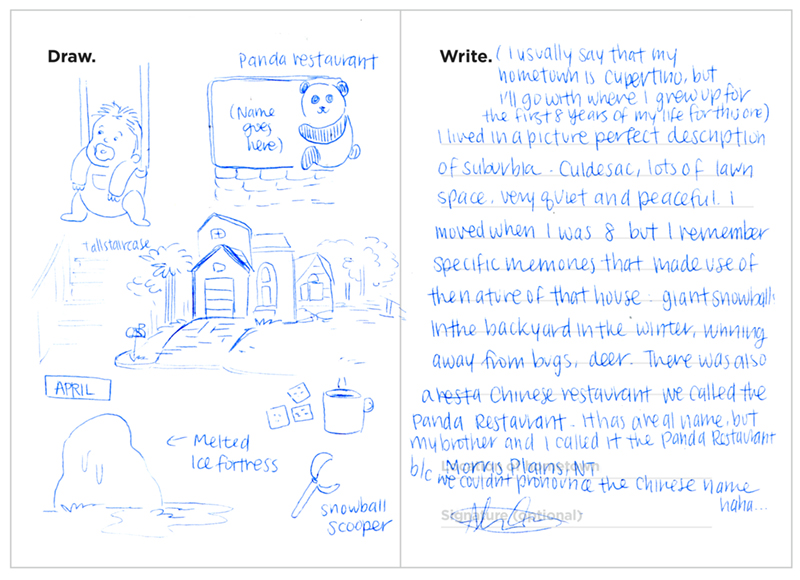 Draw.
Panda restaurant
(Name
goes
here)
Tall staircase
APRIL
← Melted
Ice fortress
snowball
scooper
Write. (I usually say that my
hometown is Cupertino, but
I'll go with where I grew up for
the first 8 years of my life for this one)
I lived in a picture perfect description
of suburbia. Culdesac, lots of lawn
space, very quiet and peaceful. I
moved when I was 8 but I remember
specific memories that made use of
the nature of that house - giant snowballs
in the backyard in the winter, running
away from bugs, deer. There was also
a resta Chinese restaurant we called the
Panda Restaurant. It has a real name, but
my brother and I called it the Panda Restaurant
b/c Morris Plains, NJ
we couldnt pronounce the Chinese name
haha...
Signature (optional)